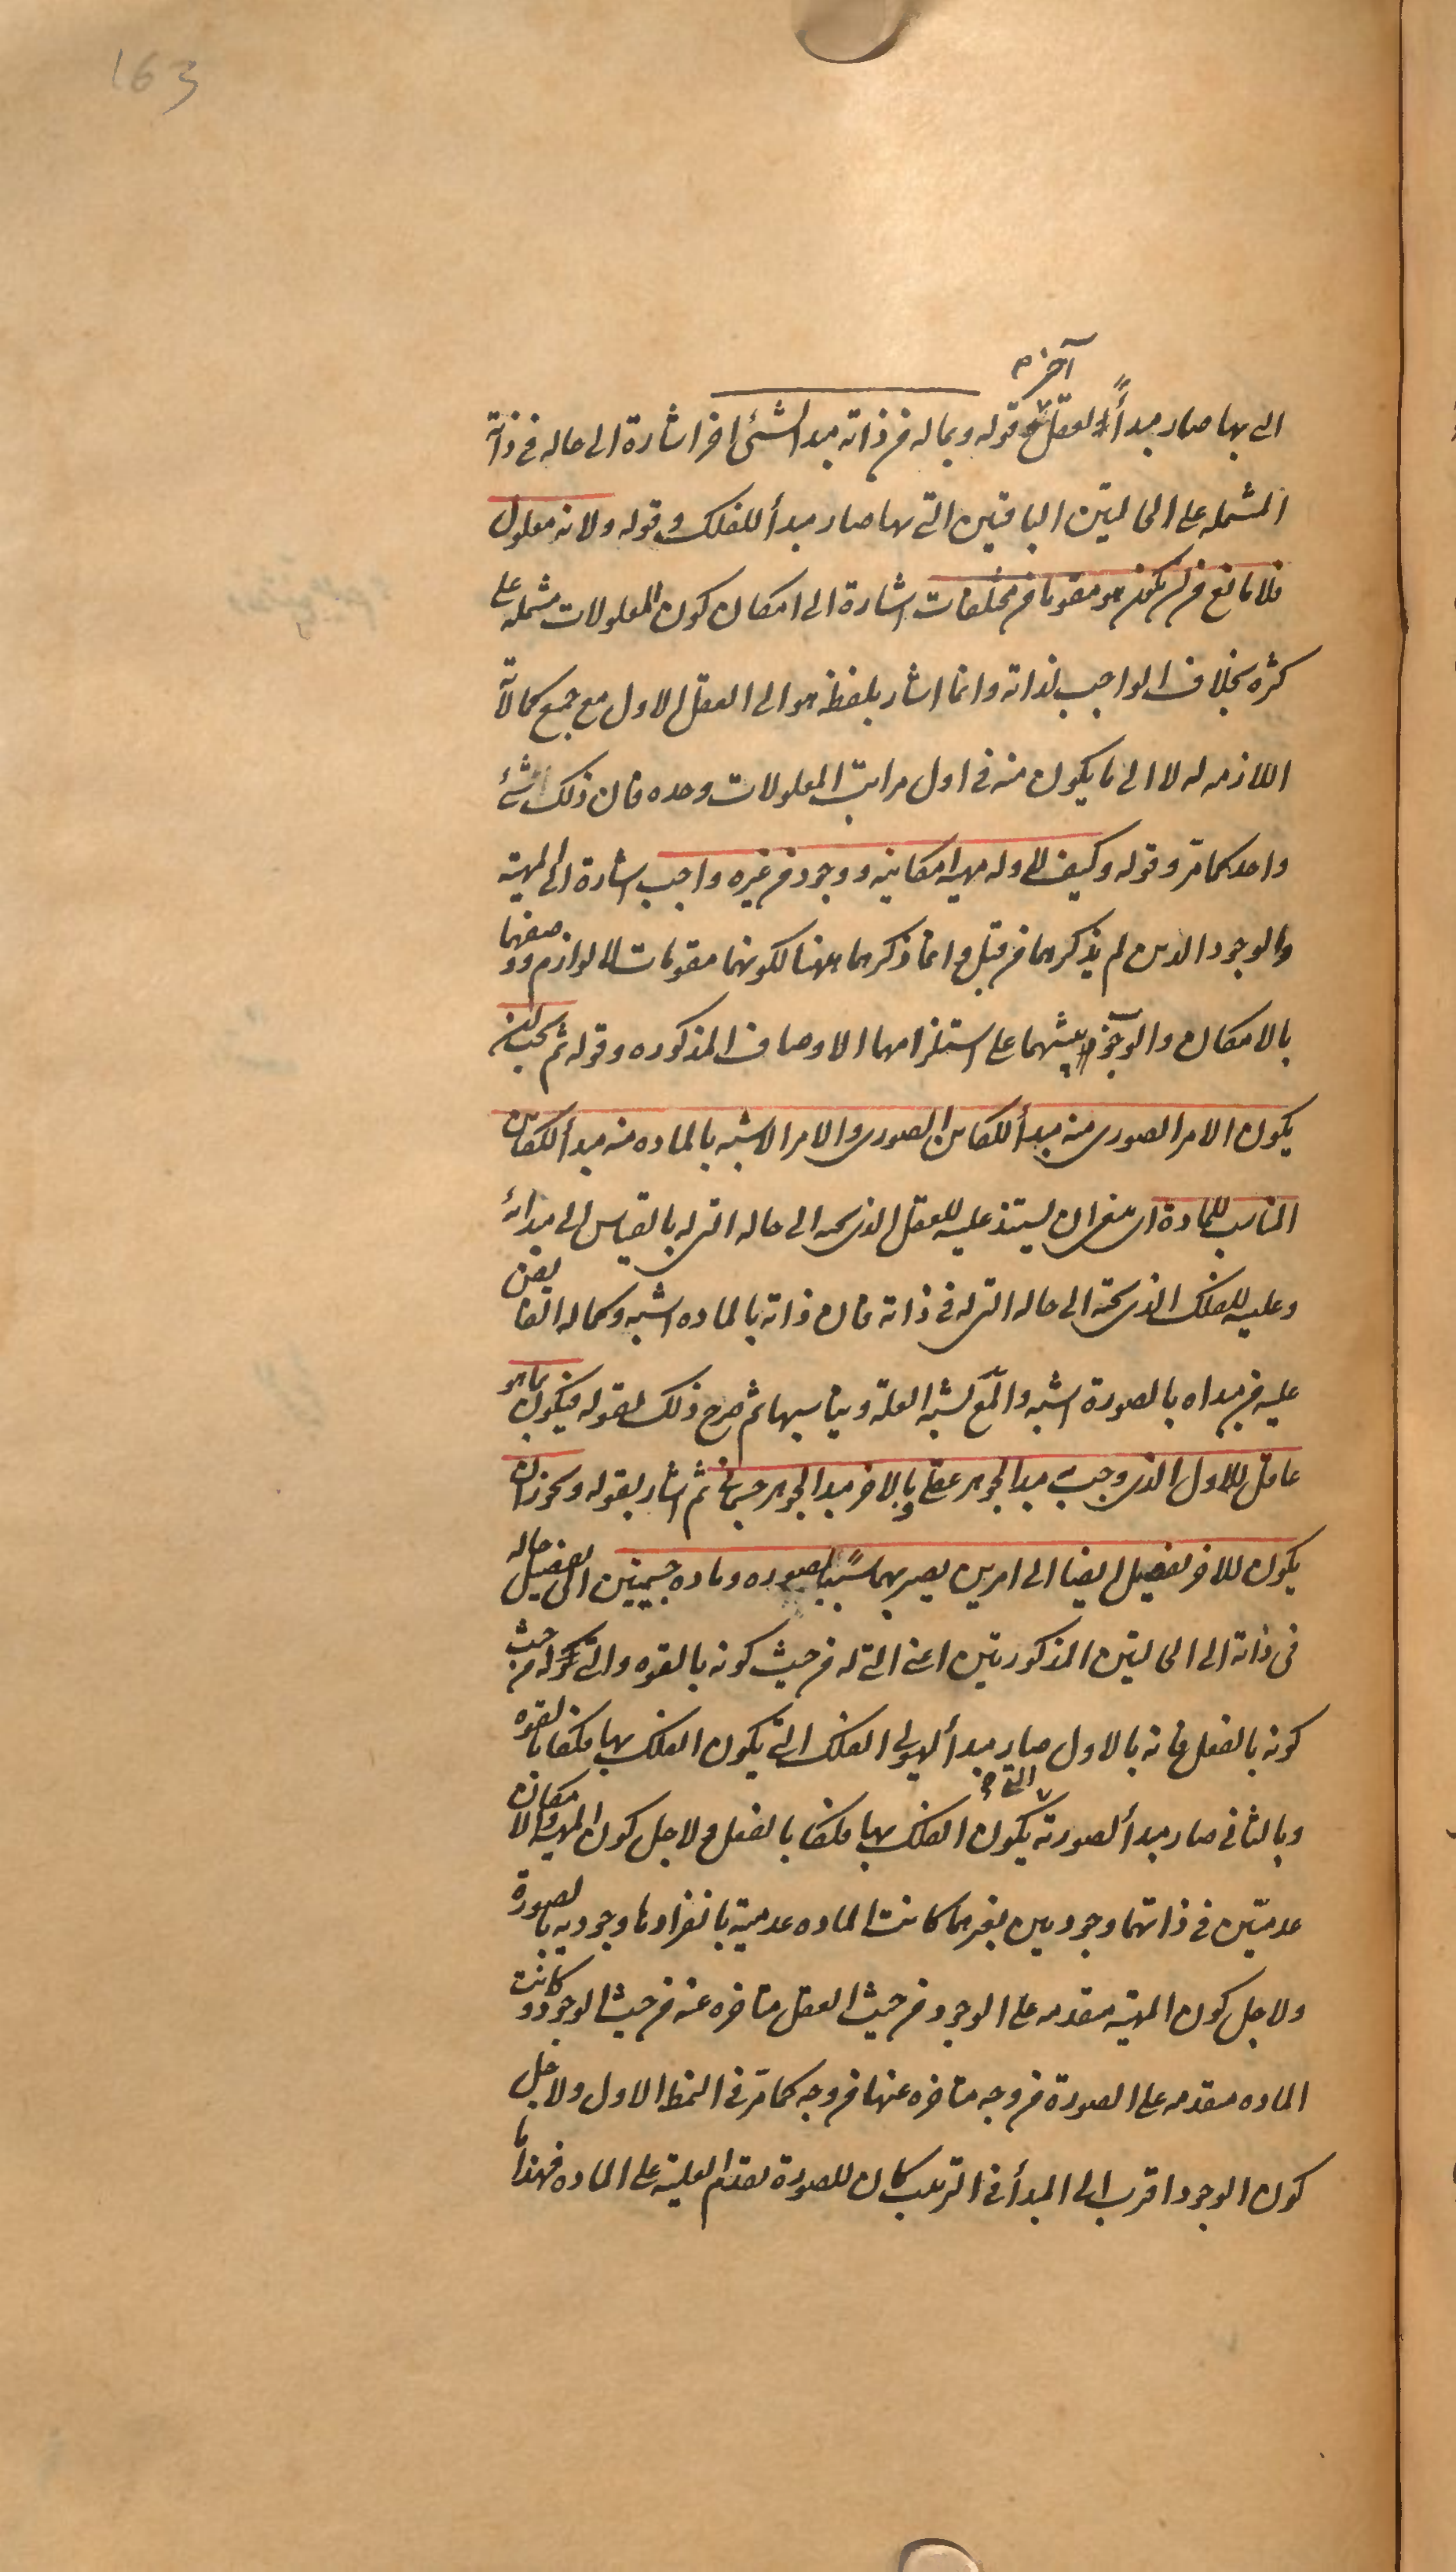 163
آخر م
التى بها صار مبدأً لعقل و قوله وبماله من ذاته مبدا لشئ اخر اشارة الى حاله فى ذاته
المشتمله على الحالتين الباقيتين التى بها صار مبدأ للفلك وقوله ولانه معلول
فلا مانع من ان يكون هو مقوما من مختلفات اشارة الى امكان كون المعلولات مشتمله على
كثره بخلاف الواجب لذاته وانما اشار بلفظه هو الى العقل الاول مع جميع كمالاته
اللازمه له لا الى ما يكون منه فى اول مراتب المعلولات وحده فان ذلك شئ
واحد كما مر وقوله وكيف لا وله مهية امكانيه ووجود من غيره واجب اشارة الى المهية
والوجود الذين لم يذكرهما من قبل وانما ذكرهما ههنا لكونهما مقومات لا لوازم ووصفهما
بالامكان والوجوب تنبيها على استلزامهما الاوصاف المذكوره وقوله ثم يجب ان
يكون الامر الصورى منه مبدأ للكاين الصورى والامر الاشبه بالماده منه مبدأ للكاين
المناسب للمادة اى ينبغى ان يستند عليته للعقل الذى تحته الى حاله التى له بالقياس الى مبدائه
وعليته للفلك الذى تحته الى حاله التى له فى ذاته فان ذاته بالماده اشبه وكماله الفايض
عليه من مبداه بالصورة اشبه والمع يشبه العلة ويناسبها ثم صرح ذلك بقوله فيكون بما هو
عاقل للاول الذى وجب به مبدا لجوهر عقلى وبالاخر مبدا لجوهر جسمانى ثم اشار بقوله ويجوز ان
يكون للاخر تفصيل ايضا الى امرين يصير بهما سببا لصوره وماده جسميتين الى تفصيل حاله
فى ذاته الى الحالتين المذكورتين اعنى التى له من حيث كونه بالقوه والتى له من حيث
كونه بالفعل فانه بالاول صار مبدأ لهيولى الفلك التى يكون الفلك بها فلكا بالقوه
التى
وبالثانى صار مبدأ لصورته يكون الفلك بها فلكا بالفعل ولاجل كون المهية والامكان
عدميتين فى ذاتهما وجوديين بغيرهما كانت الماده عدمية بانفرادها وجوديه بالصورة
ولاجل كون المهية متقدمه على الوجود من حيث العقل متاخره عنه من حيث الوجود كانت
الماده متقدمه على الصورة من وجه متاخره عنها من وجه كما مر فى النمط الاول ولاجل
كون الوجود اقرب الى المبدأ فى الترتيب كان للصورة تقدم العلية على الماده فهذا ما